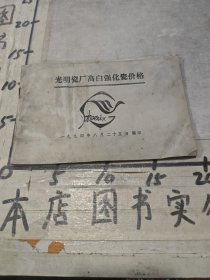 光明瓷厂高白强化瓷价格
Phoenix
一九九四年八月二十五日 编印
20
15
5
10
15
20
本店图书实